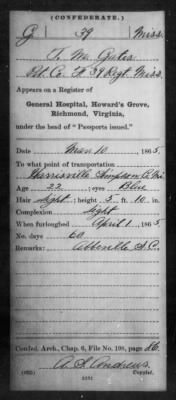 (CONFEDERATE.)
G 39 Miss.
T. M. Gates
Pvt Co. H 39 Regt. Miss.
Appears on a Register of
General Hospital, Howard's Grove,
Richmond, Virginia,
under the head of "Passports issued."
Date Mar 10, 1865
To what point of transportation
Harrisville Simpson Co. Mi
Age 22; eyes Blue
Hair light; height 5 ft. 10 in.
Complexion light
When furloughed April 1 1865
No. days 60
Remarks: Abbeville S.C.
Confed. Arch., Chap. 6, File No. 198, page 86
A. S. Andrews
Copyist.